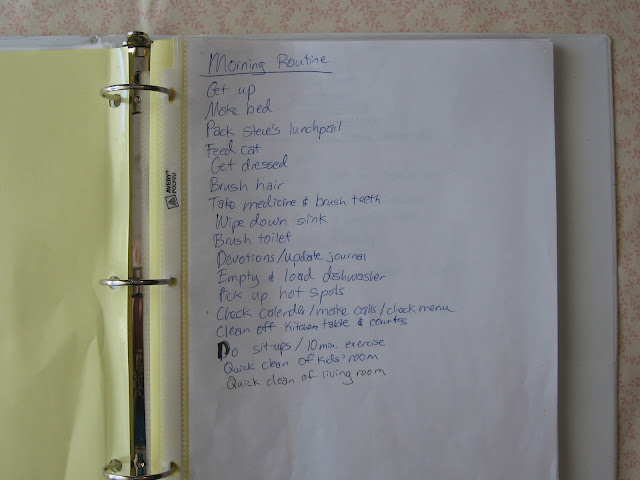 Morning Routine
Get up
Make bed
Pack Steve's lunchpail
Feed cat
Get dressed
Brush hair
Take medicine & brush teeth
Wipe down sink
Brush toilet
Devotions/update journal
Empty & load dishwasher
Pick up hot spots
Check calender/make calls/check menu
Clean off kitchen table & counter
Do sit-ups/10 min. exercise
Quick clean of kids' room
Quick clean of living room
AVERY